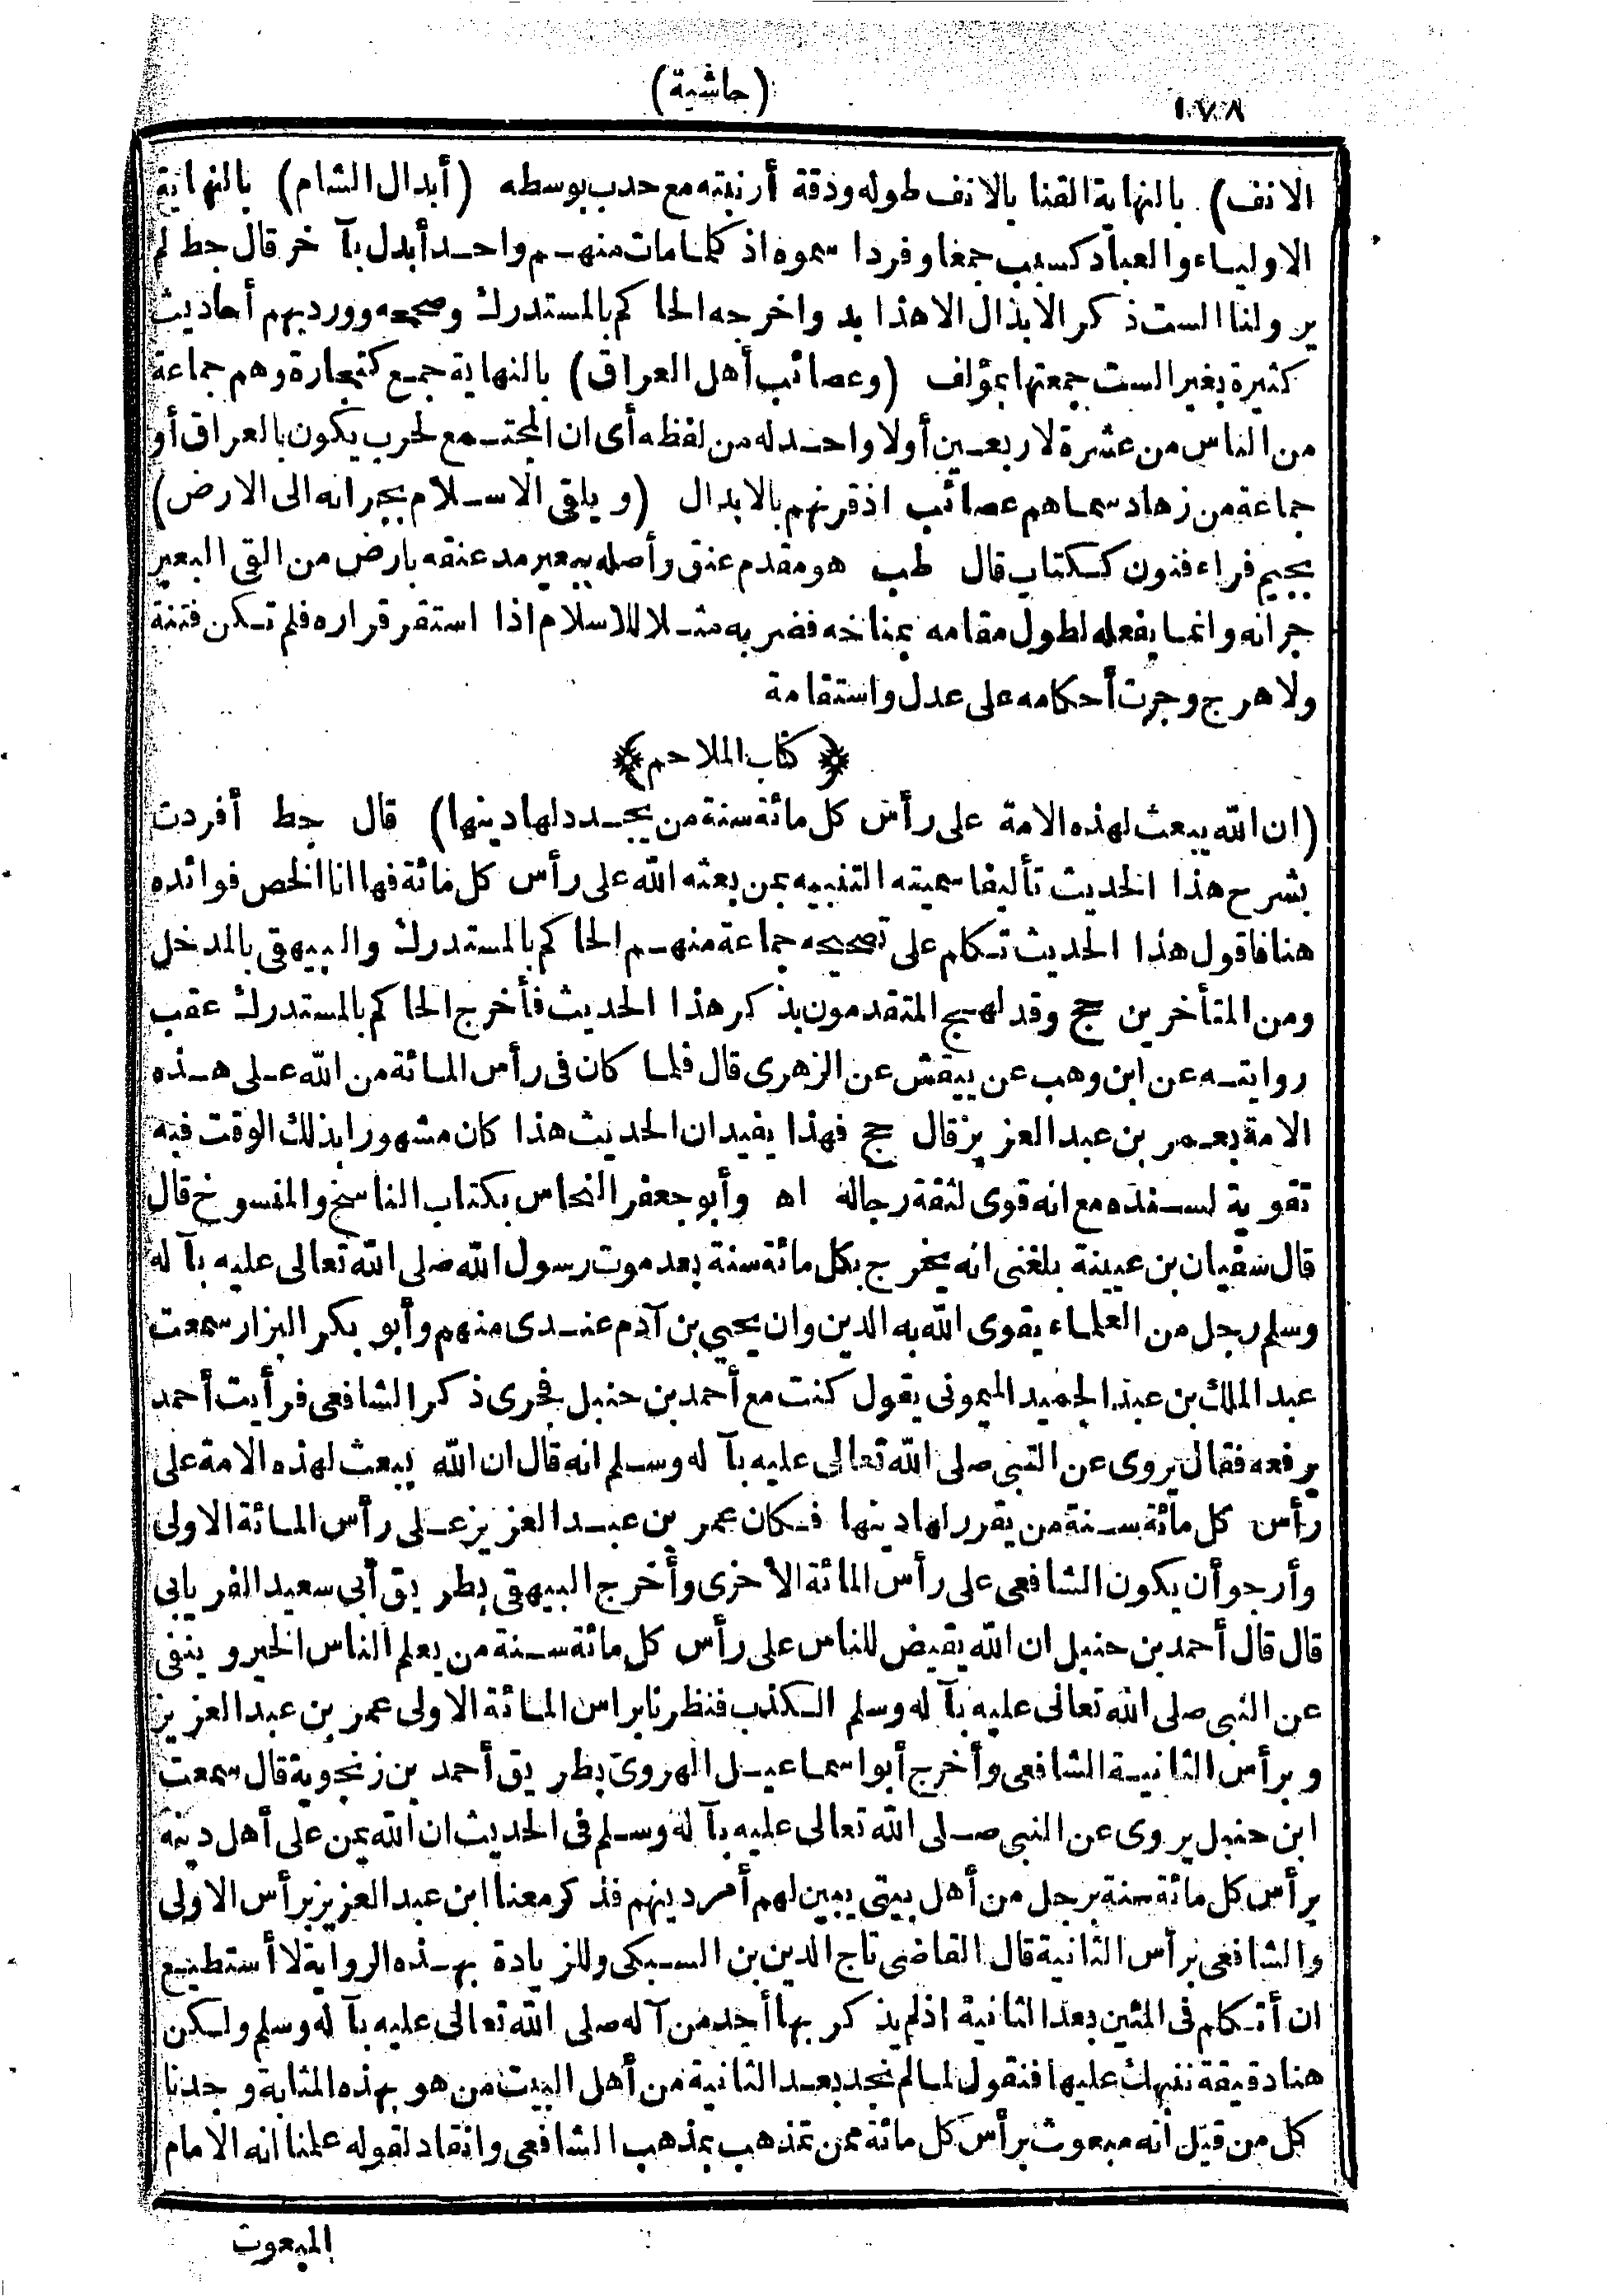 ١٧٨
(حاشية)
الانف) بالنهاية القنا بالانف طوله ودقة أرنبته مع حدب بوسطه (أبدال الشام) بالنهاية
الاولياء والعباد كسبب جمعا وفردا سموه اذ كلما مات منهم واحد أبدل بآخر قال جط لم
ير ولنا الست ذكر الابدال الا هذا بد واخرجه الحاكم بالمستدرك وصححه وورد بهم أحاديث
كثيرة بغير الست جمعتها بمؤلف (وعصائب أهل العراق) بالنهاية جمع كتجارة وهم جماعة
من الناس من عشرة لاربعين أولا واحد له من لفظه أى ان المجتمع لحرب يكون بالعراق أو
جماعة من زهاد سماهم عصائب اذ قرنهم بالابدال (ويلقى الاسلام بجرانه الى الارض)
بجيم فراء فنون ككتاب قال طب هو مقدم عنق وأصله ببعير مد عنقه بارض من القى البعير
جرانه وانما يفعله لطول مقامه بمناخه فضرب به مثلا للاسلام اذا استقر قراره فلم تكن فتنة
ولا هرج وجرت أحكامه على عدل واستقامة
﴿كتاب الملاحم﴾
(ان الله يبعث لهذه الامة على رأس كل مائة سنة من يجدد لها دينها) قال جط أفردت
بشرح هذا الحديث تأليفا سميته التنبيه بمن بعثه الله على رأس كل مائة فها انا الخص فوائده
هنا فاقول هذا الحديث تكلم على تصحيحه جماعة منهم الحاكم بالمستدرك والبيهقى بالمدخل
ومن المتأخرين حج وقد لهج المتقدمون بذكر هذا الحديث فأخرج الحاكم بالمستدرك عقب
روايته عن ابن وهب عن عن الزهرى قال فلما كان فى رأس المائة من الله على هذه
الامة بعمر بن عبد العزيز قال حج فهذا يفيد ان الحديث هذا كان مشهورا بذلك الوقت فيه
تقوية لسنده مع انه قوى لثقة رجاله اه وأبو جعفر النحاس بكتاب الناسخ والمنسوخ قال
قال سفيان بن عيينة بلغنى انه يخرج بكل مائة سنة بعد موت رسول الله صلى الله تعالى عليه بآ له
وسلم رجل من العلماء يقوى الله به الدين وان يحيي بن آدم عندى منهم وأبو بكر البزار سمعت
عبد الملك بن عبد الحميد الميمونى يقول كنت مع أحمد بن حنبل فجرى ذكر الشافعى فرأيت أحمد
يرفعه فقال يروى عن النبى صلى الله تعالى عليه بآ له وسلم انه قال ان الله يبعث لهذه الامة على
رأس كل مائة سنة من يقرر لها دينها فكان عمر بن عبد العزيز على رأس المائة الاولى
وأرجو أن يكون الشافعى على رأس المائة الاخرى وأخرج البيهقى بطريق أبى سعيد الفريابى
قال قال أحمد بن حنبل ان الله يقيض للناس على رأس كل مائة سنة من يعلم الناس الخير وينفى
عن النبى صلى الله تعالى عليه بآ له وسلم الكذب فنظرنا براس المائة الاولى عمر بن عبد العزيز
وبرأس الثانية الشافعى وأخرج أبو اسماعيل الهروى بطريق أحمد بن زنجوية قال سمعت
ابن حنبل يروى عن النبى صلى الله تعالى عليه بآ له وسلم فى الحديث ان الله يمن على أهل دينه
برأس كل مائة سنة برجل من أهل بيتى يبين لهم أمر دينهم فذكر معنا ابن عبد العزيز برأس الاولى
والشافعى برأس الثانية قال القاضى تاج الدين بن السبكى وللزيادة بهذه الرواية لا أستطيع
ان أتكلم فى المئين بعد الثانية اذ لم يذكر بها أحد من آله صلى الله تعالى عليه بآ له وسلم ولكن
هنا دقيقة ننبهك عليها فنقول لما لم نجد بعد الثانية من أهل البيت من هو بهذه المثابة وجدنا
كل من قيل انه مبعوث برأس كل مائة ممن تمذهب بمذهب الشافعى وانقاد لقوله علمنا انه الامام
المبعوث